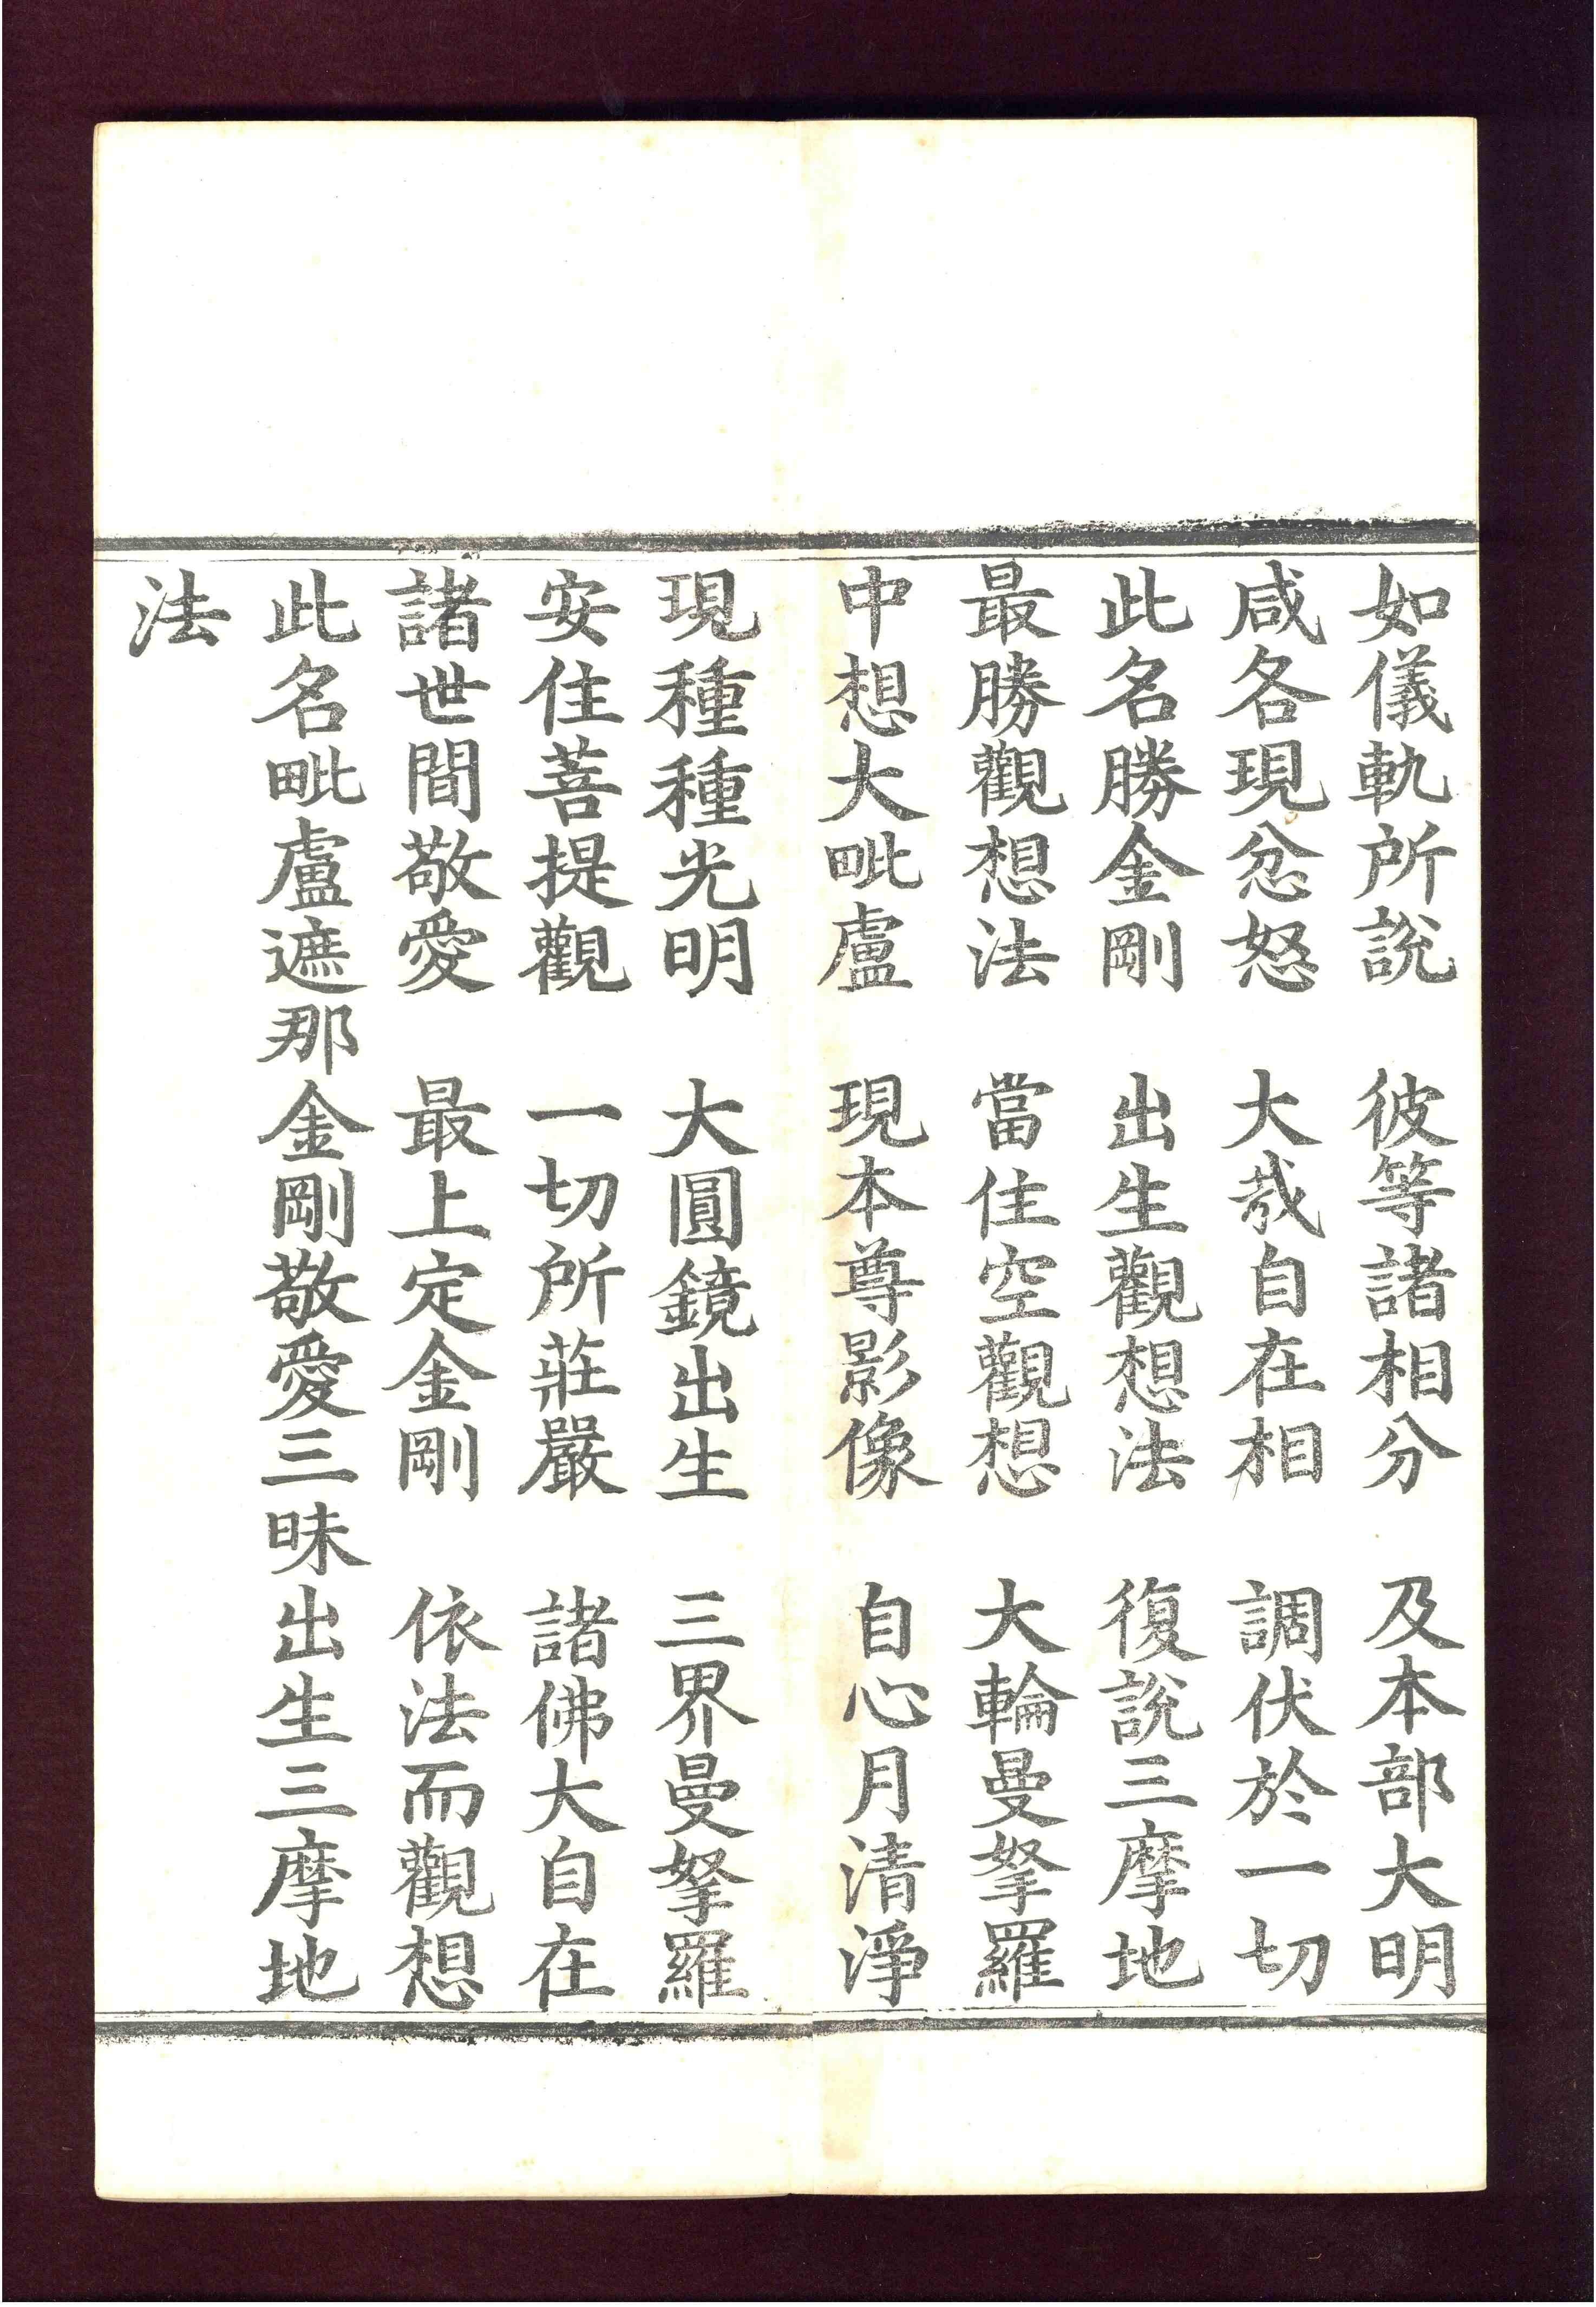 如儀軌所說　彼等諸相分　及本部大明
咸各現忿怒　大哉自在相　調伏於一切
此名勝金剛　出生觀想法　復說三摩地
最勝觀想法　當住空觀想　大輪曼拏羅
中想大毗盧　現本尊影像　自心月清淨
現種種光明　大圓鏡出生　三界曼拏羅
安住菩提觀　一切所莊嚴　諸佛大自在
諸世間敬愛　最上定金剛　依法而觀想
此名毗盧遮那金剛敬愛三昧出生三摩地
法